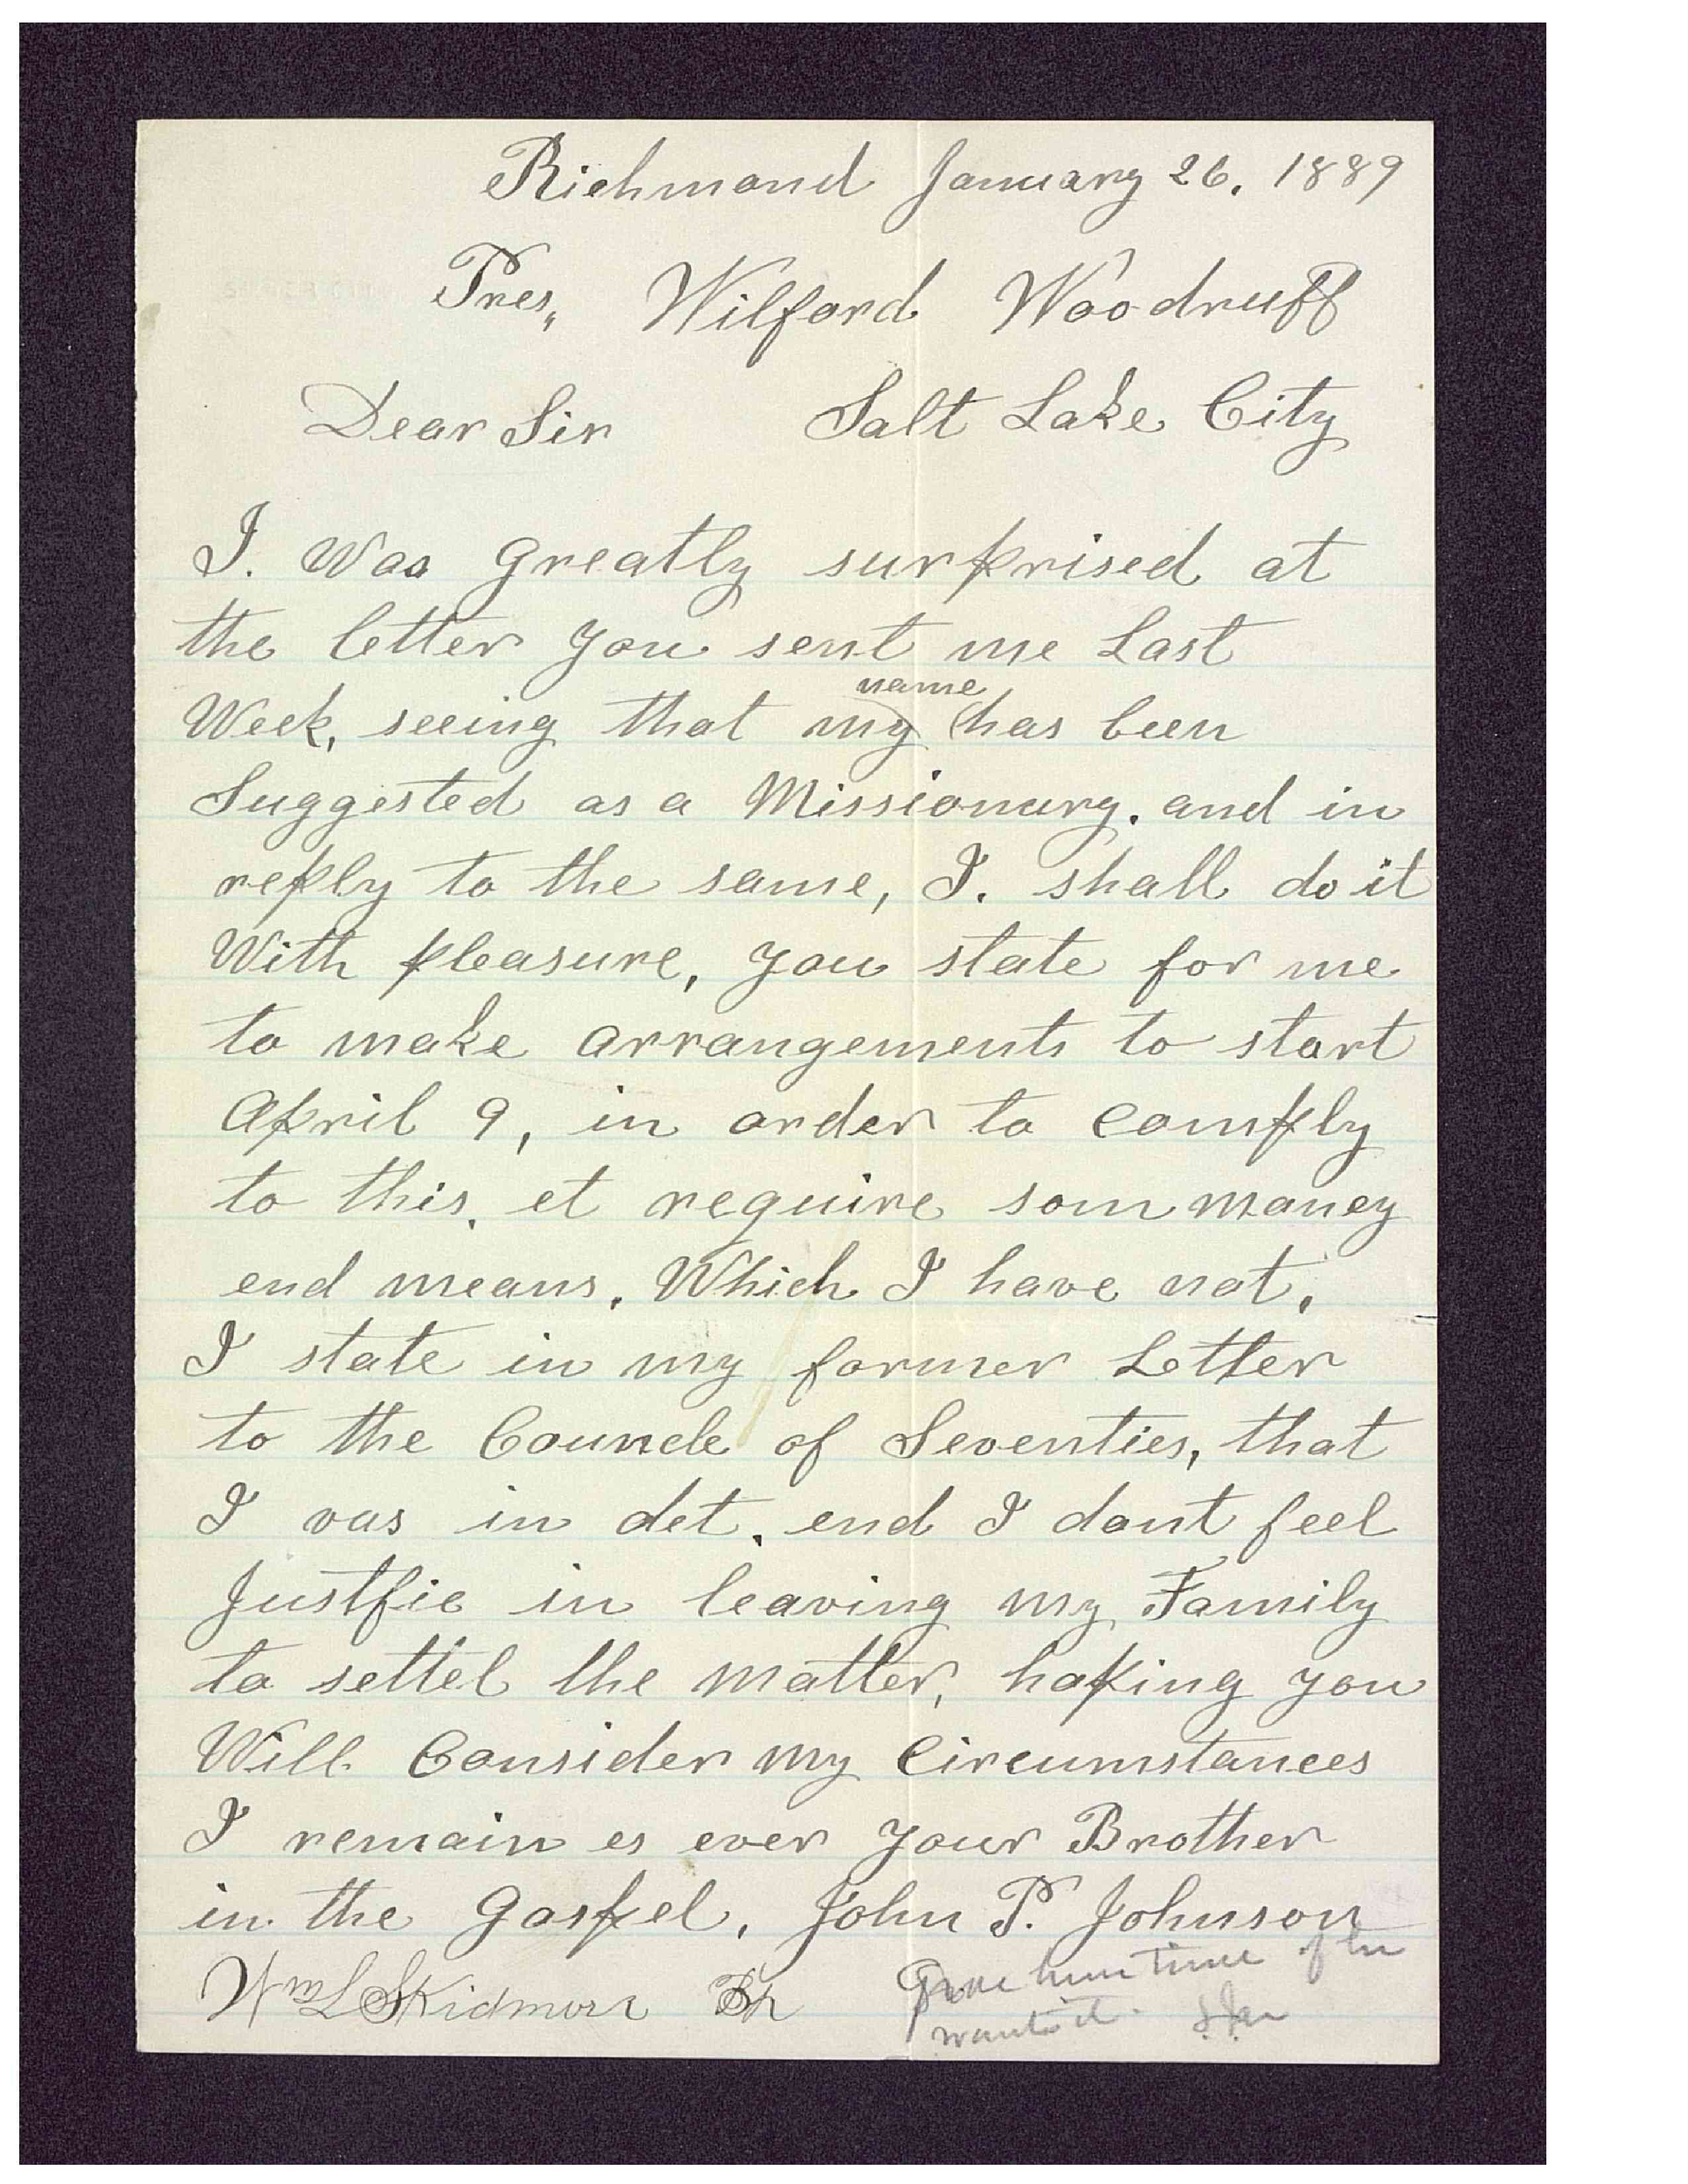 Richmond January 26. 1889
Pres,, Wilford Woodruff
Dear Sir Salt Lake City
I. Was greatly surprised at
the letter you sent me Last
name
Week, seeing that my has been
Suggested as a Missionary. and in
reply to the same, I. shall do it
With pleasure, you state for me
to make arrangements to start
April 9, in order to comply
to this, et require som money
end means. Which I have not.
I state in my former Letter
to the Councle of Seventies, that
I vas in det. end I dont feel
Justfie in leaving my Family
to settel the matter, hoping you
Will Consider my Circumstances
I remain es ever your Brother
in the Gospel, John P. Johnson
Wm L Skidmore Bp
Give him time if he
wants it.